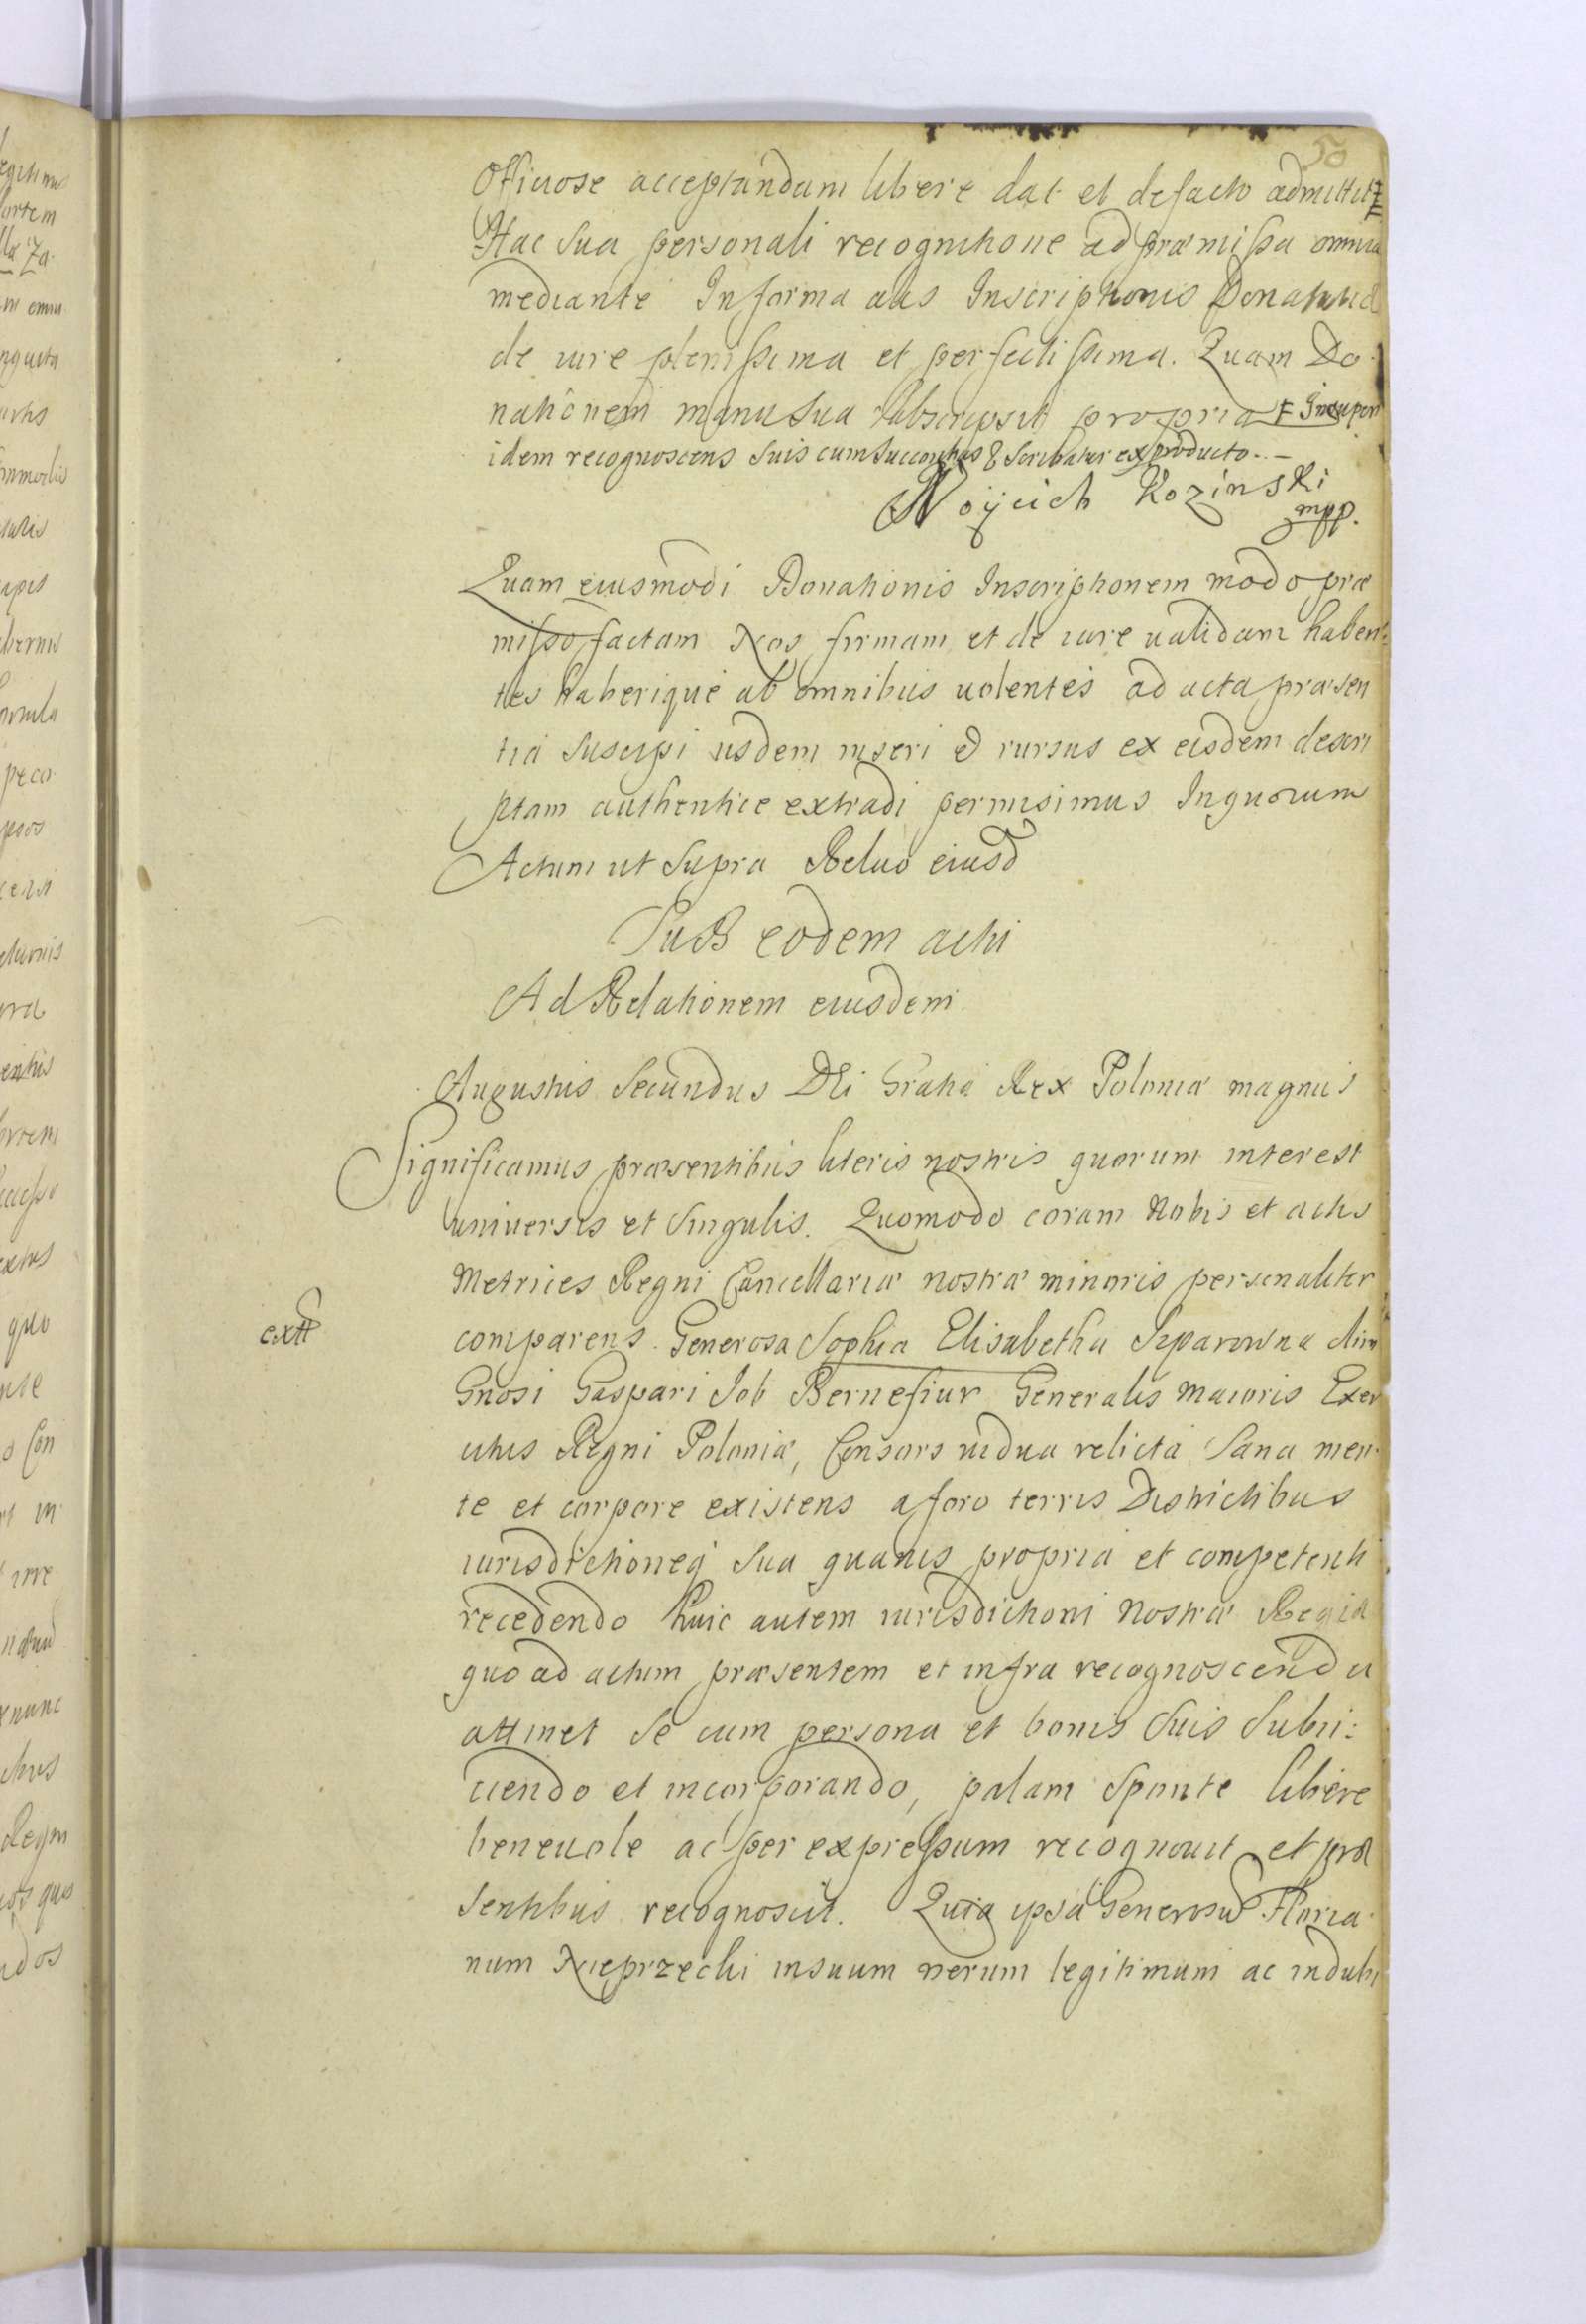 50
Officiose acceptandam libere dat et defacto admittit
Hac sua personali recognitione ad præmissa omnia
mediante In forma aas Inscriptionis Donativa
de iure plenissima et perfectissima. Quam Do-
nationem manu sua subscripsit propria Insuper
idem recognoscens suis cum successoribus & scribatur ex producto. -
Woyciech Kozinski
mpp.
Quam eiusmodi Donationis Inscriptionem modo præ
misso factam Nos firmam et de iure validam haben-
tes haberique ab omnibus volentes ad acta præsen
tia suscipi iisdem inseri et rursus ex eisdem descri
ptam authentice extradi permisimus In quorum
Actum ut supra Relao eiusd
Sub eodem actu
Ad Relationem eiusdem
Augustus Secundus DEi Gratia Rex Poloniæ magnus
Significamus præsentibus literis nostris quorum interest
universis et singulis. Quomodo coram Nobis et actis
Metrices Regni Cancellariæ nostræ minoris personaliter
extt
comparens. Generosa Sophia Elisabetha Szparowna olim
Gnosi Gaspari Job Bernefiur Generalis Maioris Exer
citus Regni Poloniæ, Consors vidua relicta sana men-
te et corpore existens a foro terris Districtibus
iurisdictioneq sua quavis propria et competenti
recedendo huic autem iurisdictioni Nostræ Regiæ
quo ad actum præsentem et infra recognoscenda
attinet se cum persona et bonis suis subii:
ciendo et incorporando, palam sponte libere
benevole ac per expressum recognovit et præ
sentibus recognoscit. Quia ipsa Generosu Floria-
num Nieprzecki in suum verum legitimum ac indubi